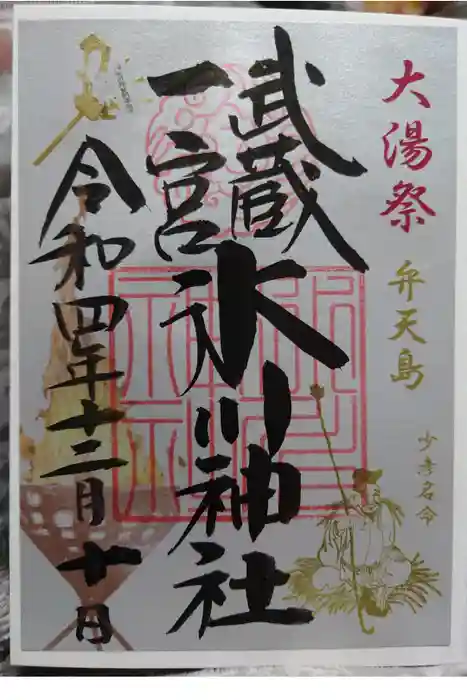 大湯祭
弁天島
少彦名命
武蔵
一宮
氷川神社
令和四年十二月十日